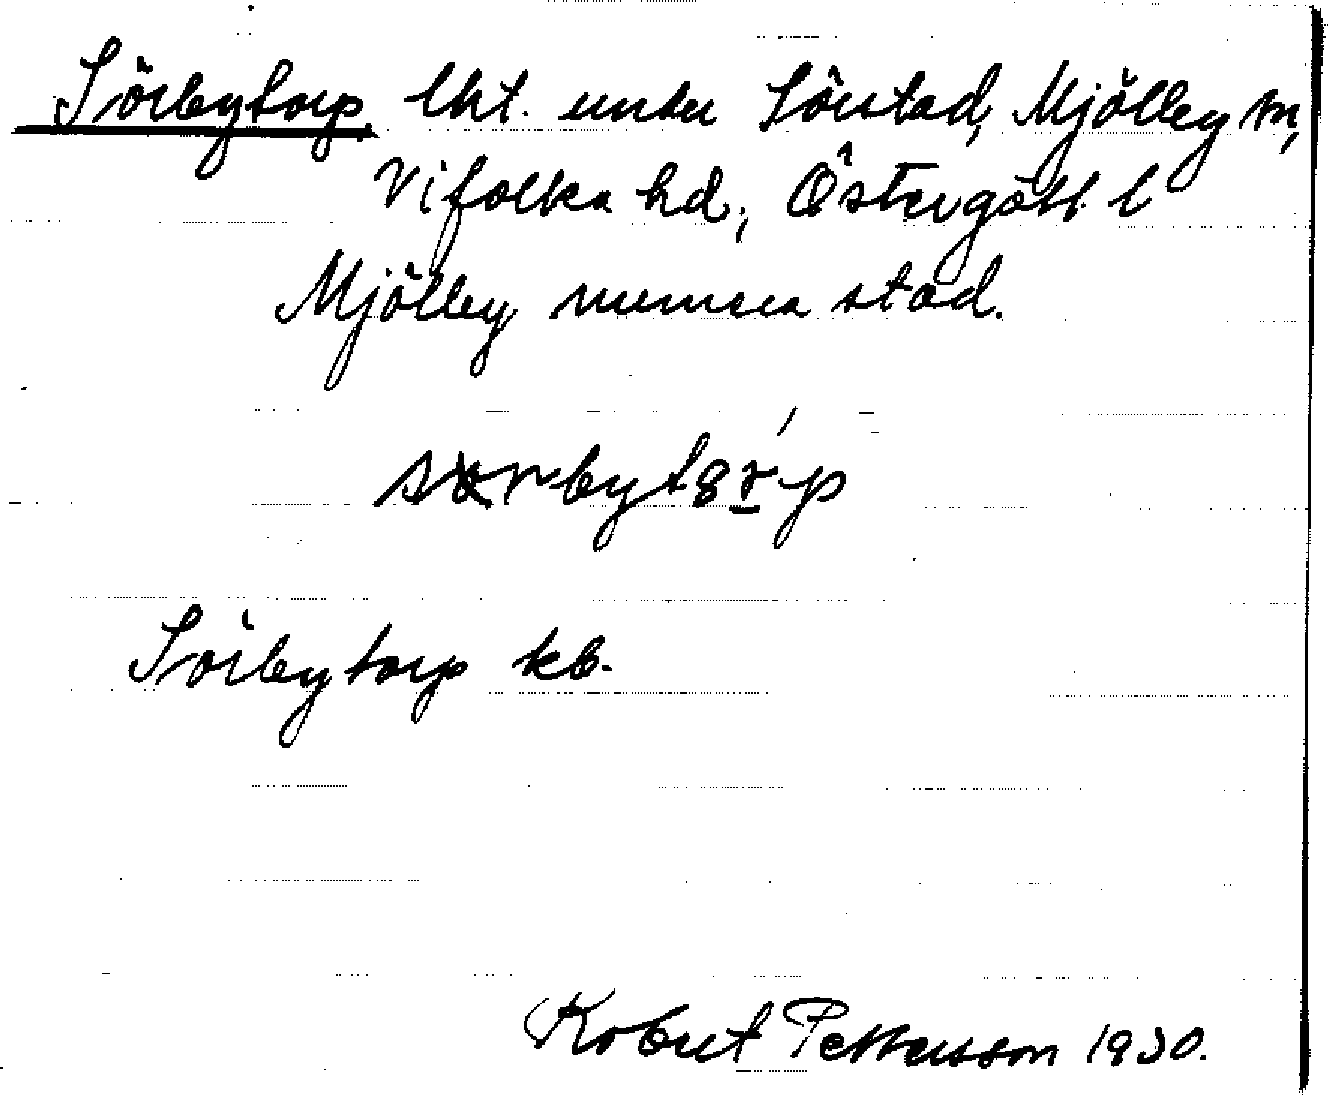 Sörbytorp, lht. under Sörstad, Mjölby sn,
Vifolka hd, Östergötl. l
Mjölby numera stad.
by
Sörbytorp kb.
Robert Pettersson 1930.